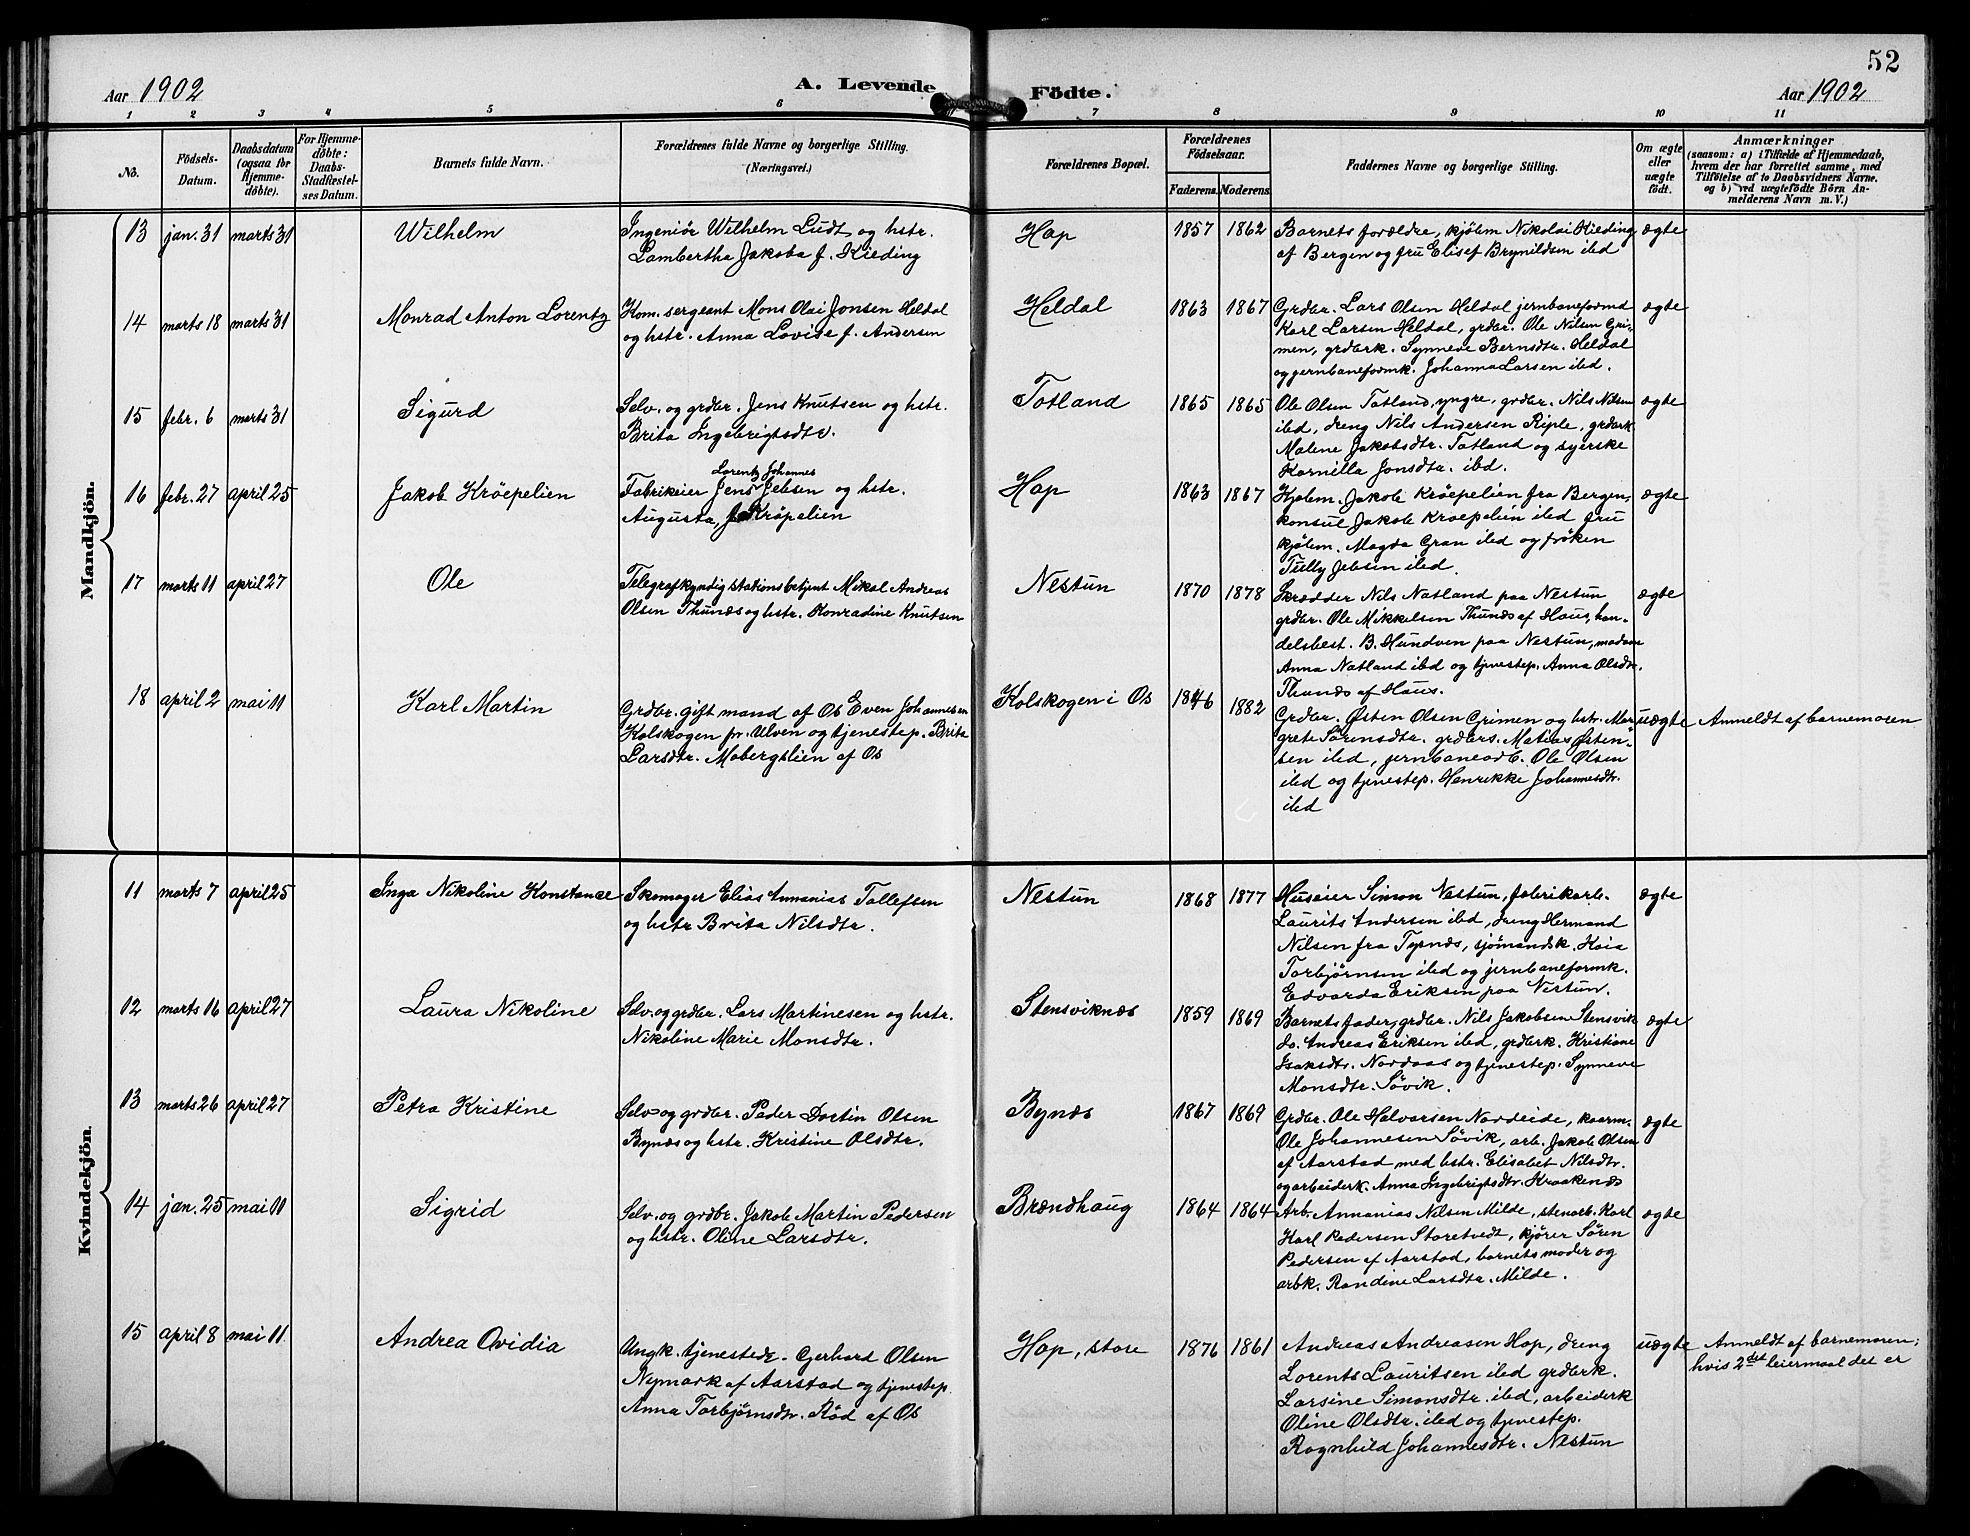 52
Aar 1902
A. Levende Födte.
Aar 1902
1 2 3 4 5 6 7 8 9 10 11
No.
Födsels-
Datum.
Daabsdatum
(ogsaa for
Hjemme-
döbte).
For Hjemme-
döbte:
Daabs-
Stadfæstel-
ses Datum.
Barnets fulde Navn.
Forældrenes fulde Navne og borgerlige Stilling.
(Næringsvei.)
Forældrenes Bopæl.
Forældrenes
Födselsaar.
Faderens. Moderens.
Faddernes Navne og borgerlige Stilling.
Om ægte
eller
uægte
födt.
Anmærkninger
(saasom: a) i Tilfælde af Hjemmedaab,
hvem der har forrettet samme, med
Tilföielse af to Daabsvidners Navne.
og b) ved uægtefödte Börn An-
melderens Navn m. V.)
Mandkjön.
13 jan. 31 marts 31 Wilhelm
Ingeniör Wilhelm Ludt og hstr.
Lambertha Jakoba f. Kieding
Hop 1857 1862
Barnets forældre, kjöbm Nikolai Kieding
af Bergen og fru Elisef Brynildsen ibd
ægte
14 marts 18 marts 31 Monrad Anton Lorentz
Kom. sergeant Mons Olai Jonsen Heldal
og hstr. Anna Lovise f. Andersen
Heldal 1863 1867
Grdbr. Lars Olsen Heldal jernbaneformd
Karl Larsen Heldal, grdbr. Ole Nilsen Gri-
men, grdbrk. Synneve Berntsdtr. Heldal
og jernbaneformk. Johanna Larsen ibd.
ægte
15 febr. 6 marts 31 Sigurd
Selv. og grdbr. Jens Knutsen og hstr.
Brita Ingebrigtsdtr.
Totland 1865 1865
Ole Olsen Totland, yngre, grdbr. Nils Nilsen
ibd, dreng Nils Andersen Riple, grdbrk
Malene Jakobsdtr. Totland og syerske
Kornilla Jonsdtr. ibd.
ægte
16 febr. 27 april 25 Jakob Kröepelien
Lorentz Johannes
Fabrikeier Jens Jebsen og hstr.
Augusta, f. Kröpelien
Hop 1863 1867
Kjöbm. Jakob Kröepelien fra Bergen,
konsul Jakob Kroepelien ibd fru
kjöbm. Magda Gran ibd og fröken
Tully Jebsen ibd.
ægte
17 marts 11 april 27 Ole
Telegrafkyndig stationsbetjent Mikal Andreas
Olsen Thunæs og hstr. Konradine Knutsen
Nestun 1870 1878
Skrædder Nils Natland paa Nestun
grdbr. Ole Mikkelsen Thunæs af Haus, han-
delsbest. B. Hundven paa Nestun, madam
Anna Natland ibd og tjenestep. Anna Olsdtr.
Thunæs af Haus.
ægte
18 april 2 mai 11 Karl Martin
Grdbr. gift mand af Os Even Johannesen
Kolskogen pr. Ulven og tjenestep. Brita
Larsdtr. Mobergslien af Os
Kolskogen i Os 1846 1882
Grdbr. Østen Olsen Grimen og hstr. Mar-
grete Sörensdtr. grdbrs. Matias Østen-
sen ibd, jernbanearb. Ole Olsen
ibd og tjenestep. Henrikke Johannesdtr.
ibd
uægte Anmeldt af barnemoren
Kvindekjön.
11 marts 7 april 25 Inga Nikoline Konstance
Skomager Elias Annanias Tollefsen
og hstr Brita Nilsdtr.
Nestun 1868 1877
Huseier Simon Nestun, fabrikarb.
Laurits Andersen ibd, dreng Hermand
Nilsen fra Tysnæs, sjömandsk. Kaia
Torbjörnsen ibd og jernbaneformk.
Edvarda Eriksen paa Nestun.
ægte
12 marts 16 april 27 Laura Nikoline
Selv. og grdbr. Lars Martinesen og hstr.
Nikoline Marie Monsdtr.
Stensviknæs 1859 1869
Barnets fader, grdbr. Nils Jakobsen Stensvik
do. Andreas Eriksen ibd, grdbrk. Kristiane
Isaksdtr. Nordaas og tjenestep. Synneve
Monsdtr. Sövik.
ægte
13 marts 26 april 27 Petra Kristine
Selv- og grdbr. Peder Dortin Olsen
Bynæs og hstr. Kristine Olsdtr.
Bynæs 1867 1869
Grdbr. Ole Halvorsen Nordeide, kaarm.
Ole Johannesen Sövik, arb. Jakob Olsen
af Aarstad med hstr. Elisabet Nilsdtr.
og arbeiderk. Anna Ingebrigtsdtr. Kraakenæs
ægte
14 jan. 25 mai 11 Sigrid
Selv. og grdbr. Jakob Martin Pedersen
og hstr. Oline Larsdtr.
Brændhaug 1864 1864
Arb. Annanias Nilsen Milde, stenarb. Karl
Karl Pedersen Storetvedt, kjörer Sören
Pedersen af Aarstad, barnets moder og
arbk. Randine Larsdtr. Milde.
ægte
15 april 8 mai 11. Andrea Ovidia
Ungk. tjenestedr. Gerhard Olsen
Nymark af Aarstad og tjenestep.
Anna Torbjörnsdtr. Röd af Os
Hop, store 1876 1861
Andreas Andreasen Hop, dreng
Lorents Lauritsen ibd grdbrk.
Larsine Simonsdtr. ibd, arbeiderk
Oline Olsdtr. ibd og tjenestep.
Ragnhild Johannesdtr. Nestun
uægte Anmeldt af barnemoren;
hvis 2det leiermaal det er